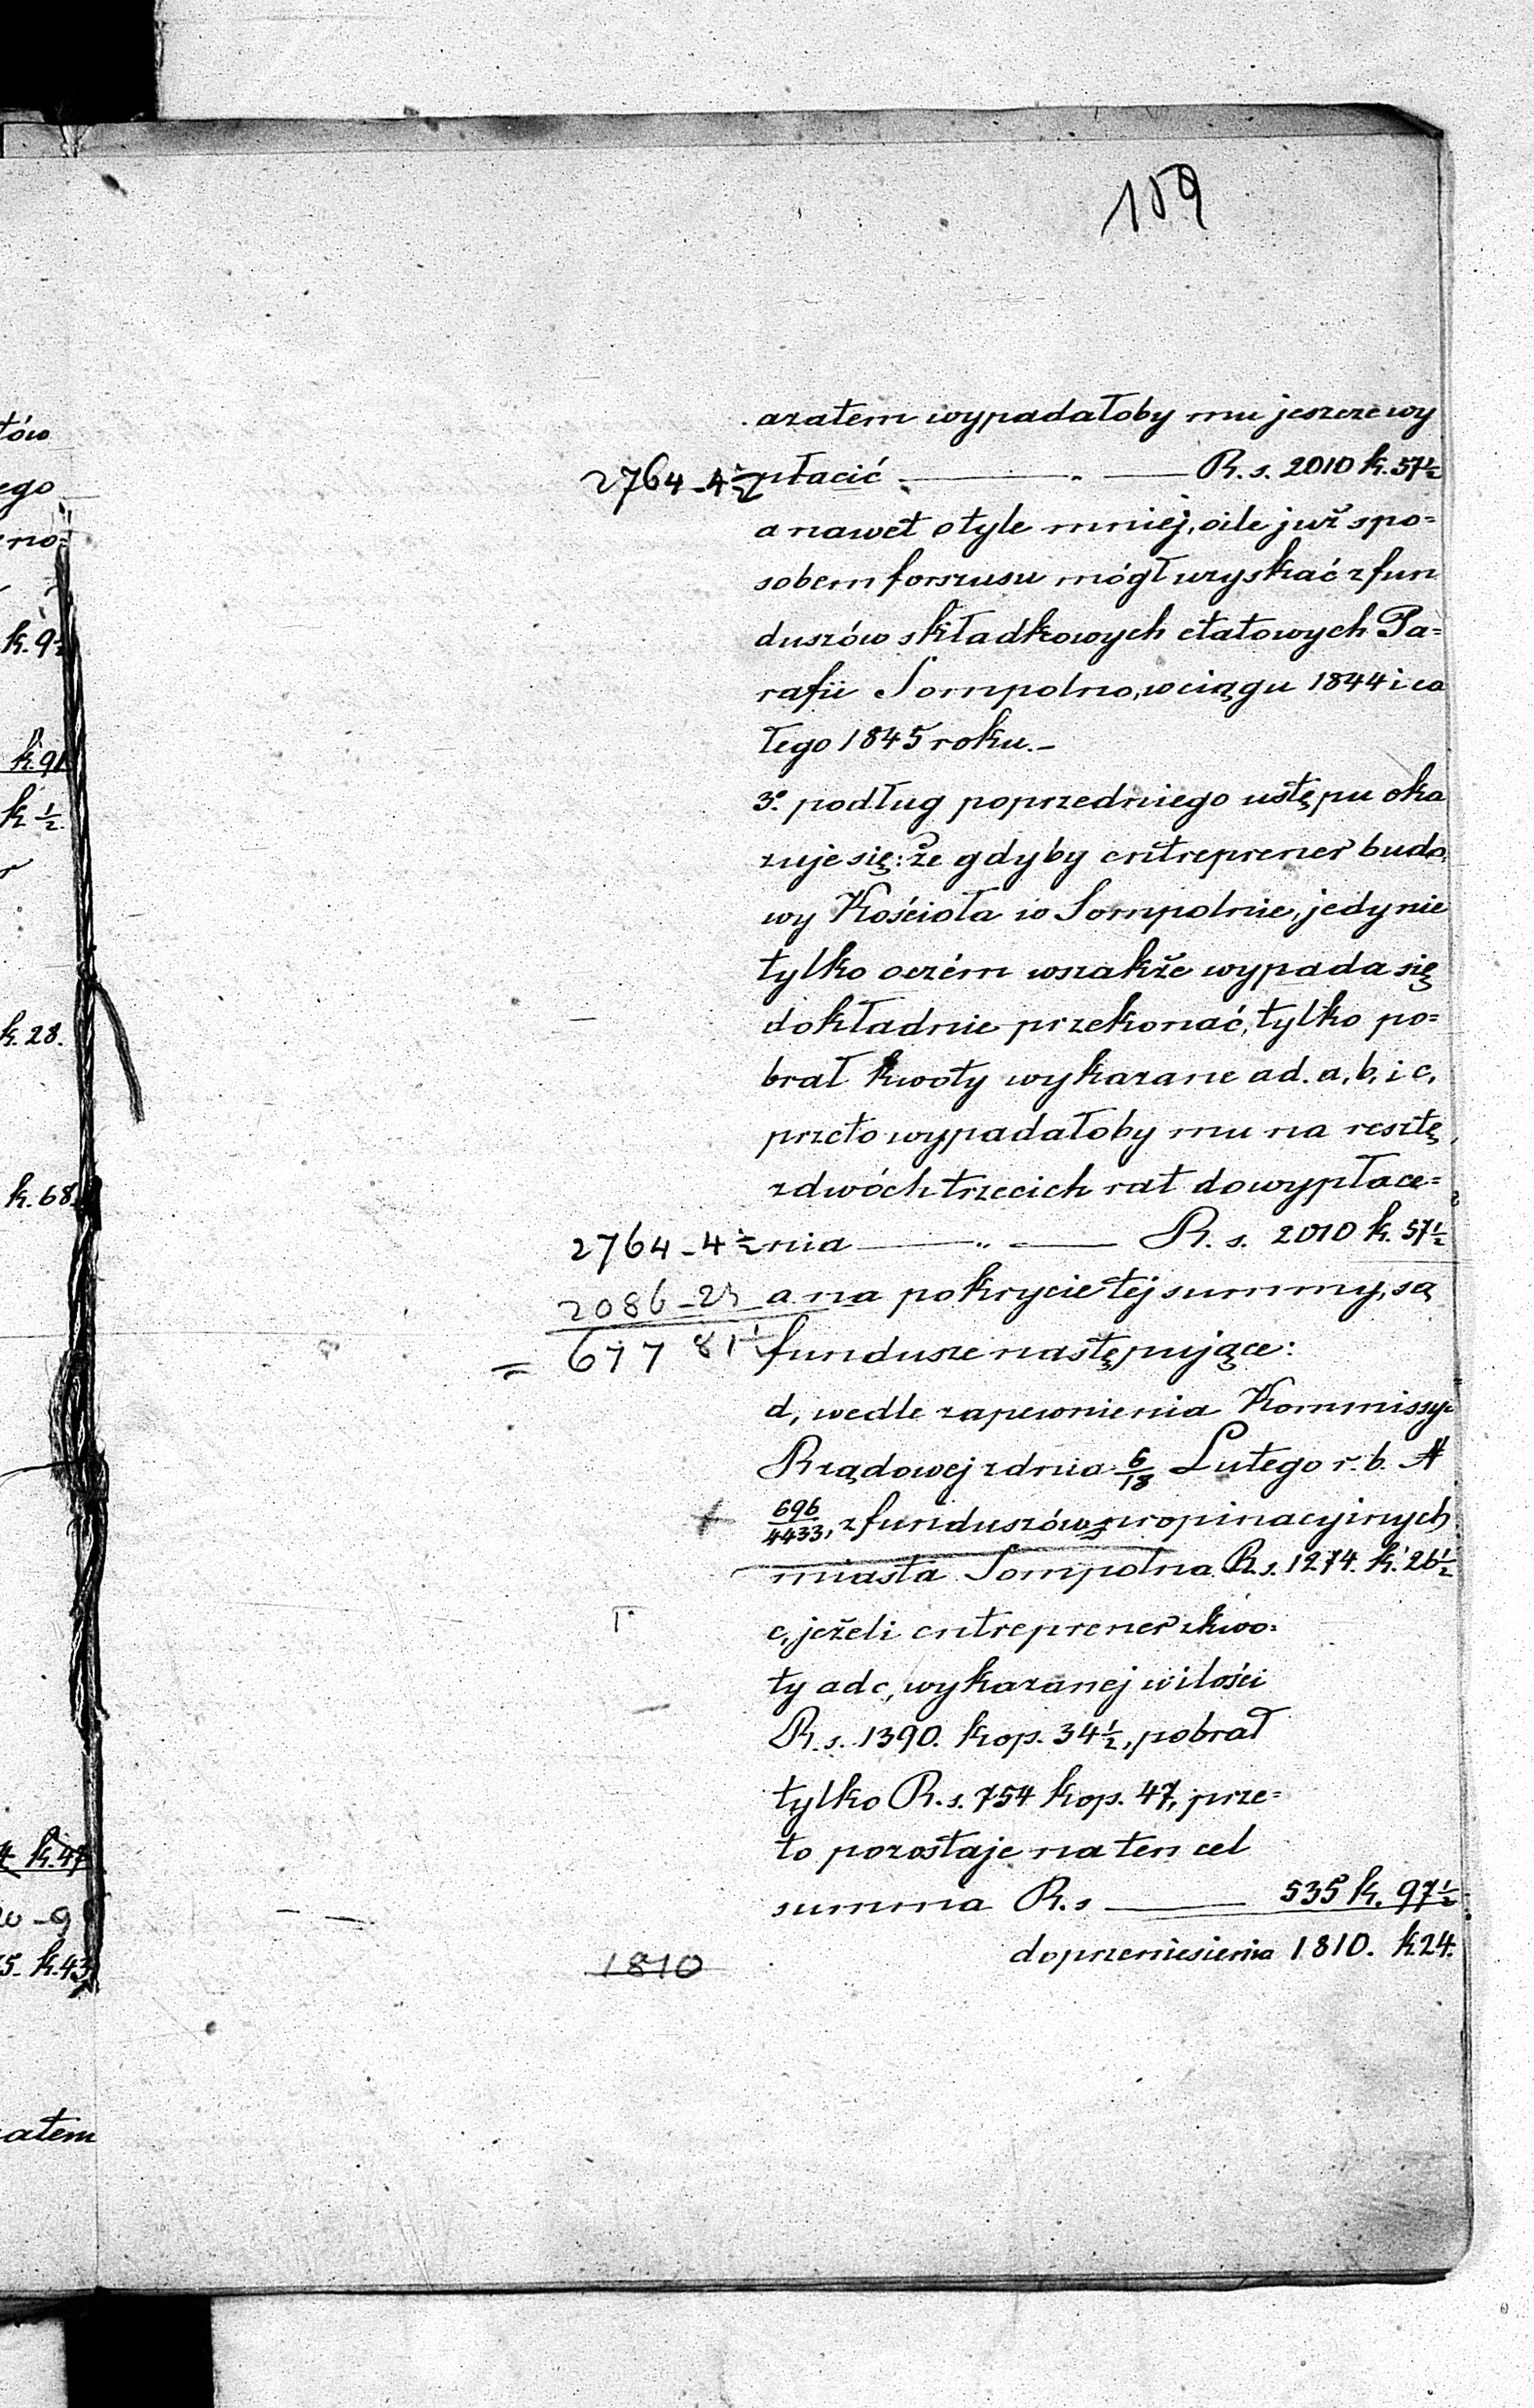 159
azatem wypadałoby mu jeszcze wy
2764-4½ płacić — R. s. 2010 k. 57½
a nawet o tyle mniej, o ile już spo=
sobem forszusu mógł uzyskać z fun
duszów składkowych etatowych Pa=
rafii Sompolno, w ciągu 1844 i ca
łego 1845 roku.-
3º podług poprzedniego ustępu oka
zuje się: że gdyby entreprener budo
wy Kościoła w Sompolnie, jedynie
tylko oczém wszakże wypada się
dokładnie przekonać, tylko po=
brał kwoty wykazane ad. a, b, i c,
przeto wypadałoby mu na resztę
z dwóch trzecich rat do wypłace=
2764-4½ nia — R. s. 2010 k. 57½
2086-23 a na pokrycie tej summy, są
= 677 81½ fundusze następujące:
d, wedle zapewnienia Kommissyi
Rządowej z dnia 6/18 Lutego r. b. N
696/4433, z funduszów propinacyjnych
miasta Sompolna R. s. 1274. k. 26½
e, jeżeli entreprener z kwo=
ty ad c, wykazanej w ilości
R. s. 1390. kop. 34½, pobrał
tylko R. s. 754 kop. 47, prze=
to pozostaje na ten cel
summa R. s — 535 k. 97½
1810 do przeniesienia 1810. k 24.
tów
ego
no=
k. 9½
k. 91
k ½
k. 28.
k. 68
k. 47
k. 43
atem